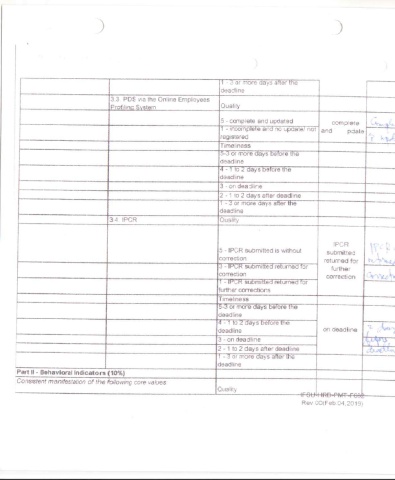 1 - 3 or more days after the
deadline
3.3 PDS via the Online Employees
Profiling System
Quality
5 - complete and updated
1 - incomplete and no update/ not
registered
complete
and
Timeliness
5-3 or more days before the
deadline
4 - 1 to 2 days before the
deadline
3 - on deadline
2 - 1 to 2 days after deadline
1 - 3 or more days after the
deadline
3.4 IPCR
Quality
5 - IPCR submitted is without
correction
3 - IPCR submitted returned for
correction
1 - IPCR submitted returned for
further corrections
IPCR
submitted
returned for
further
correction
Timeliness
5-3 or more days before the
deadline
4 - 1 to 2 days before the
deadline
3 - on deadline
2 - 1 to 2 days after deadline
1 - 3 or more days after the
deadline
on deadline
Part II - Behavioral Indicators (10%)
Consistent manifestation of the following core values
Quality